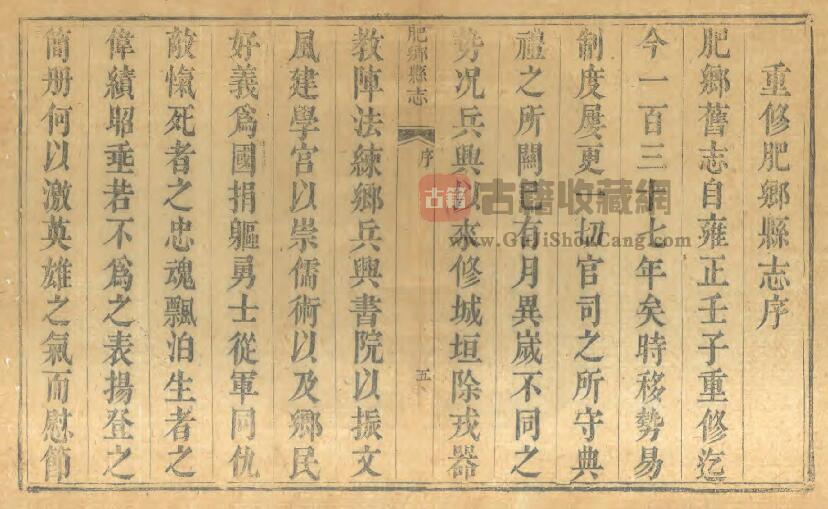 重修肥鄉縣志序
肥鄉舊志自雍正壬子重修迄
今一百三十七年矣時移勢易
制度屢更一切官司之所守典
禮之所關已有月異嵗不同之
势况兵興以來修城垣除戎器
肥鄉縣志
序
五
教陣法練鄉兵興書院以振文
風建學宮以崇儒術以及鄉民
好義爲國捐軀勇士從軍同仇
敵愾死者之忠魂飄泊生者之
偉績昭垂若不爲之表揚登之
簡册何以激英雄之氣而慰節
古籍
古籍收藏網
www.GuJiShouCang.com